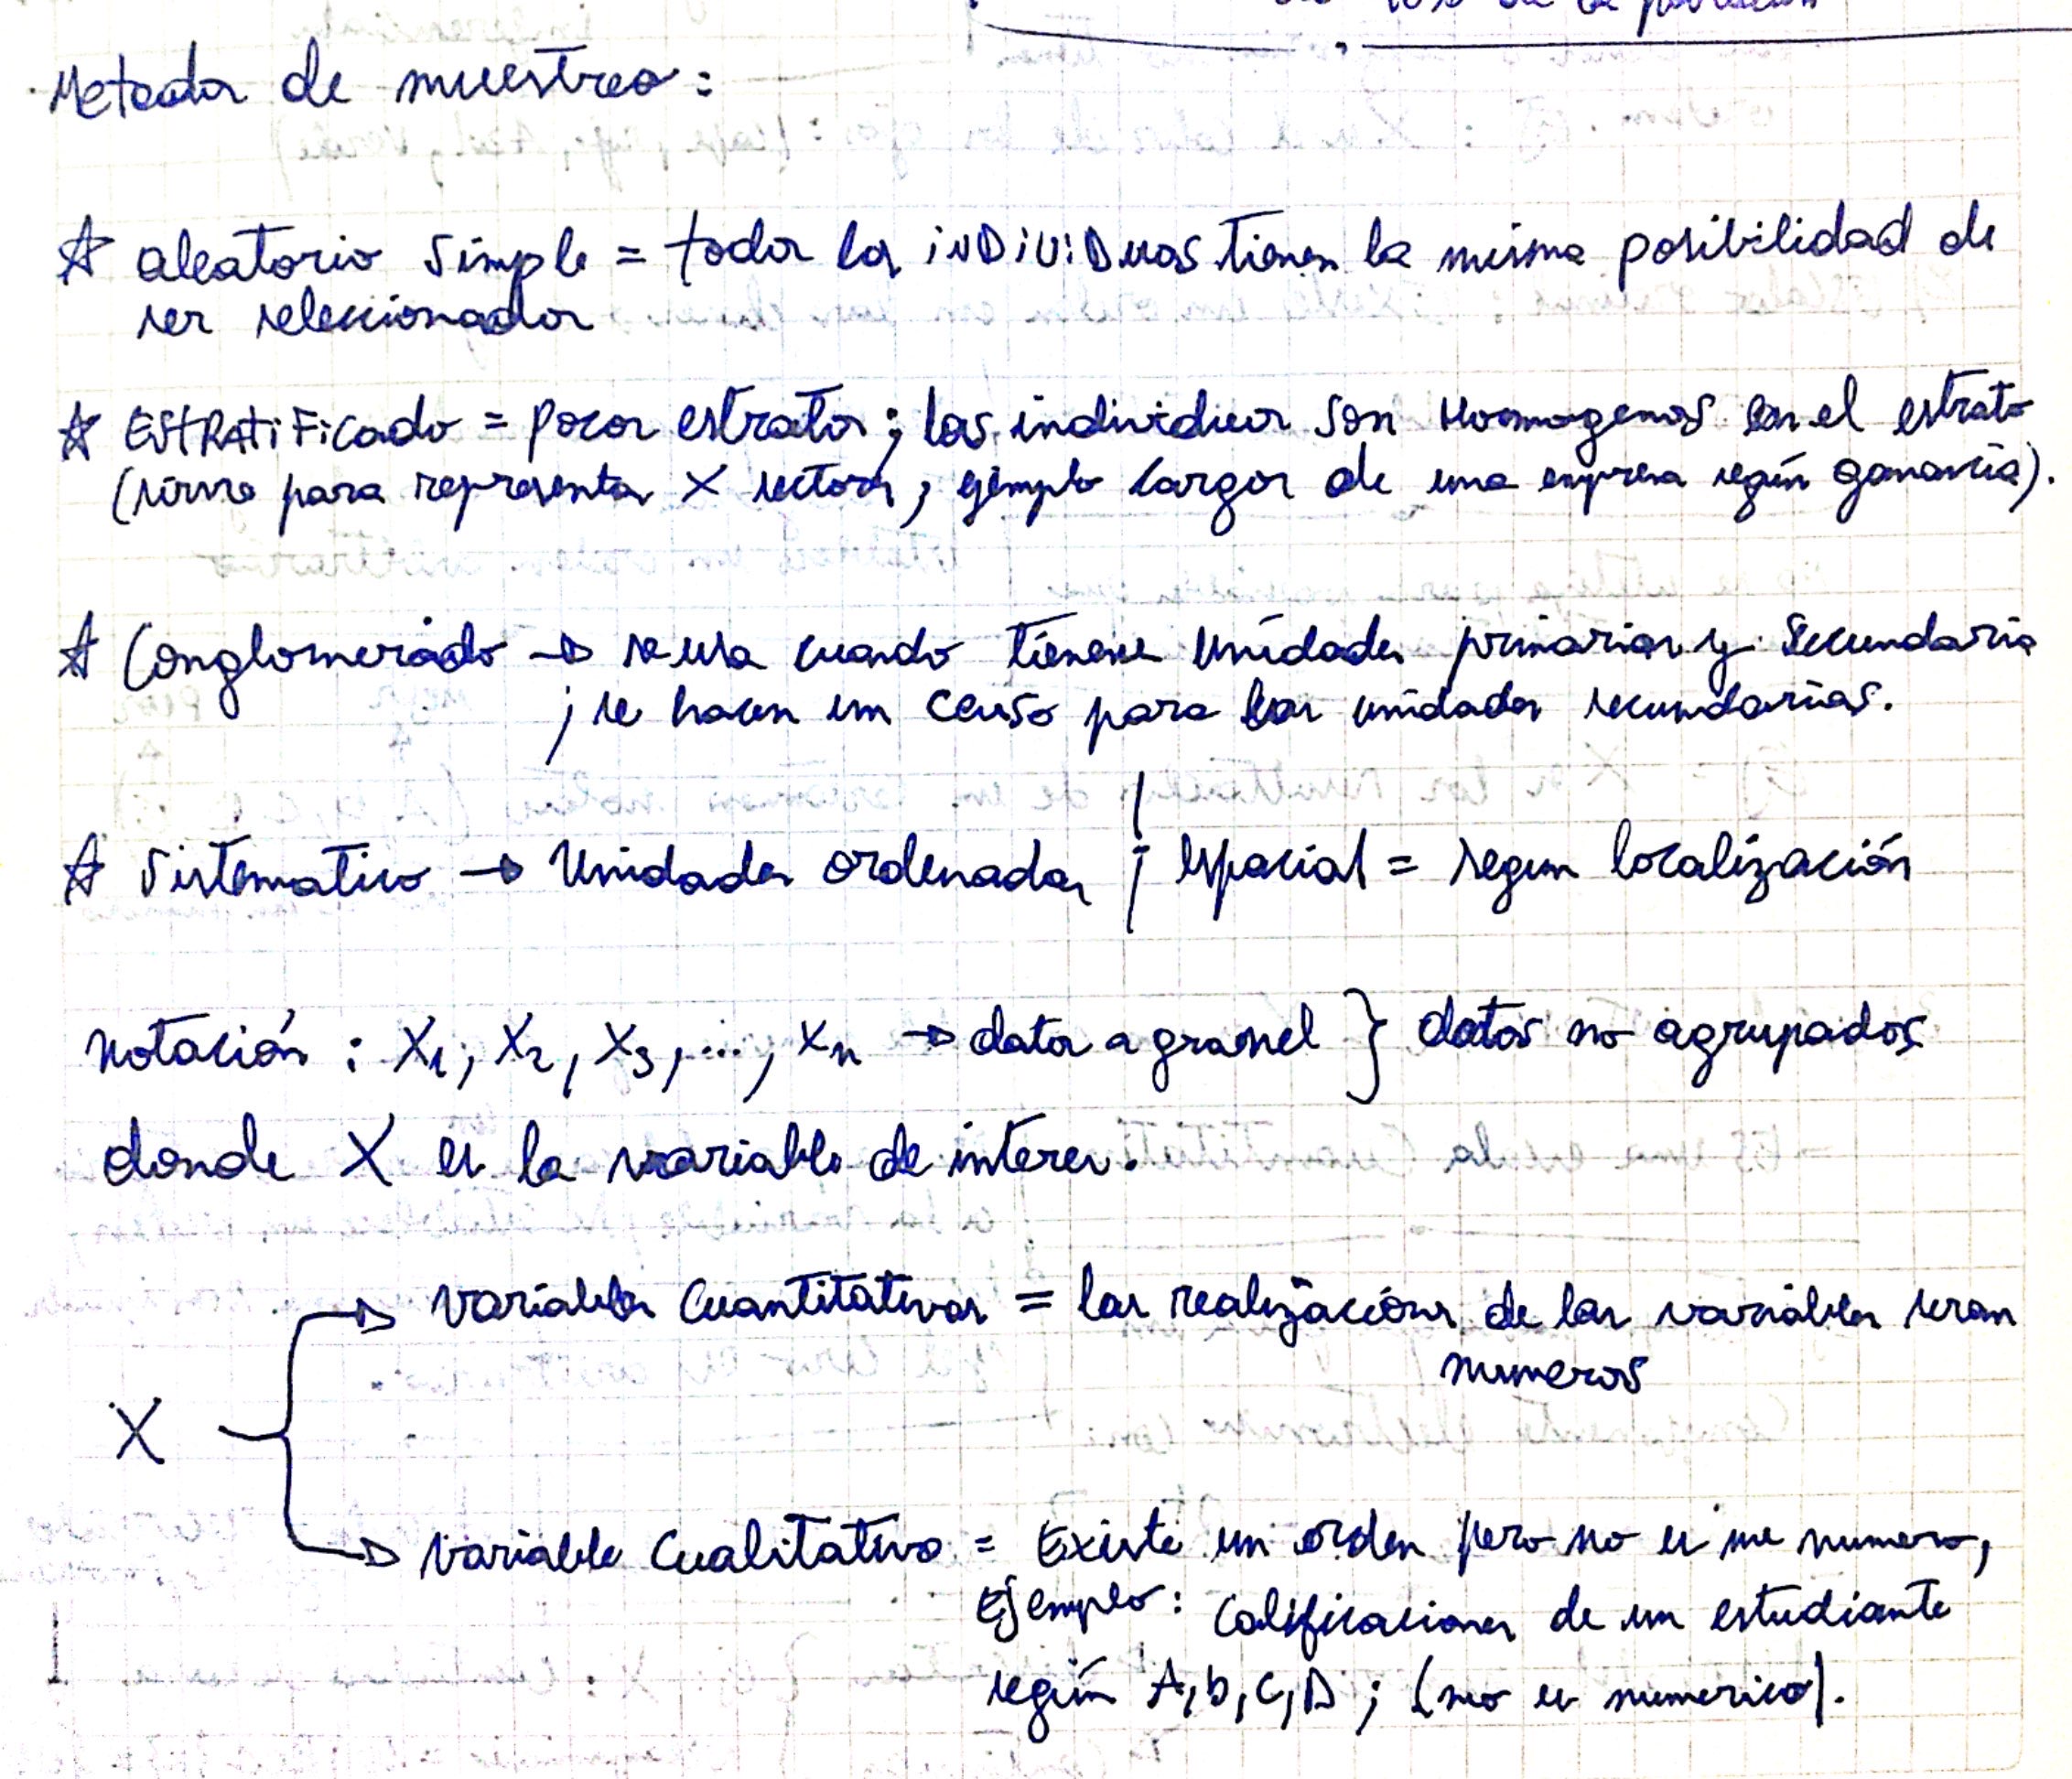 Metodos de muestreo:
☆ aleatorio simple = todos los individuos tienen la misma posibilidad de
ser seleccionados
☆ Estratificado = pocos estratos; los individuos son Homogenos en el estrato
(sirve para representar X sectores, ejemplo cargos de una empresa según ganancia).
☆ Conglomerado → se usa cuando tienene unidades primarias y secundaria
; se hacen un censo para las unidades secundarias.
☆ Sistematico → Unidades ordenadas ; espacial = segun localización
notación : X1; X2, X3, ..., Xn → datos a granel } datos no agrupados
donde X es la variable de interes.
variables Cuantitativas = las realizaciones de las variables seran
numeros
X
variable Cualitativa = Existe un orden pero no es numero,
Ejemplo: Calificaciones de un estudiante
según A, b, C, D ; (no es numerico).